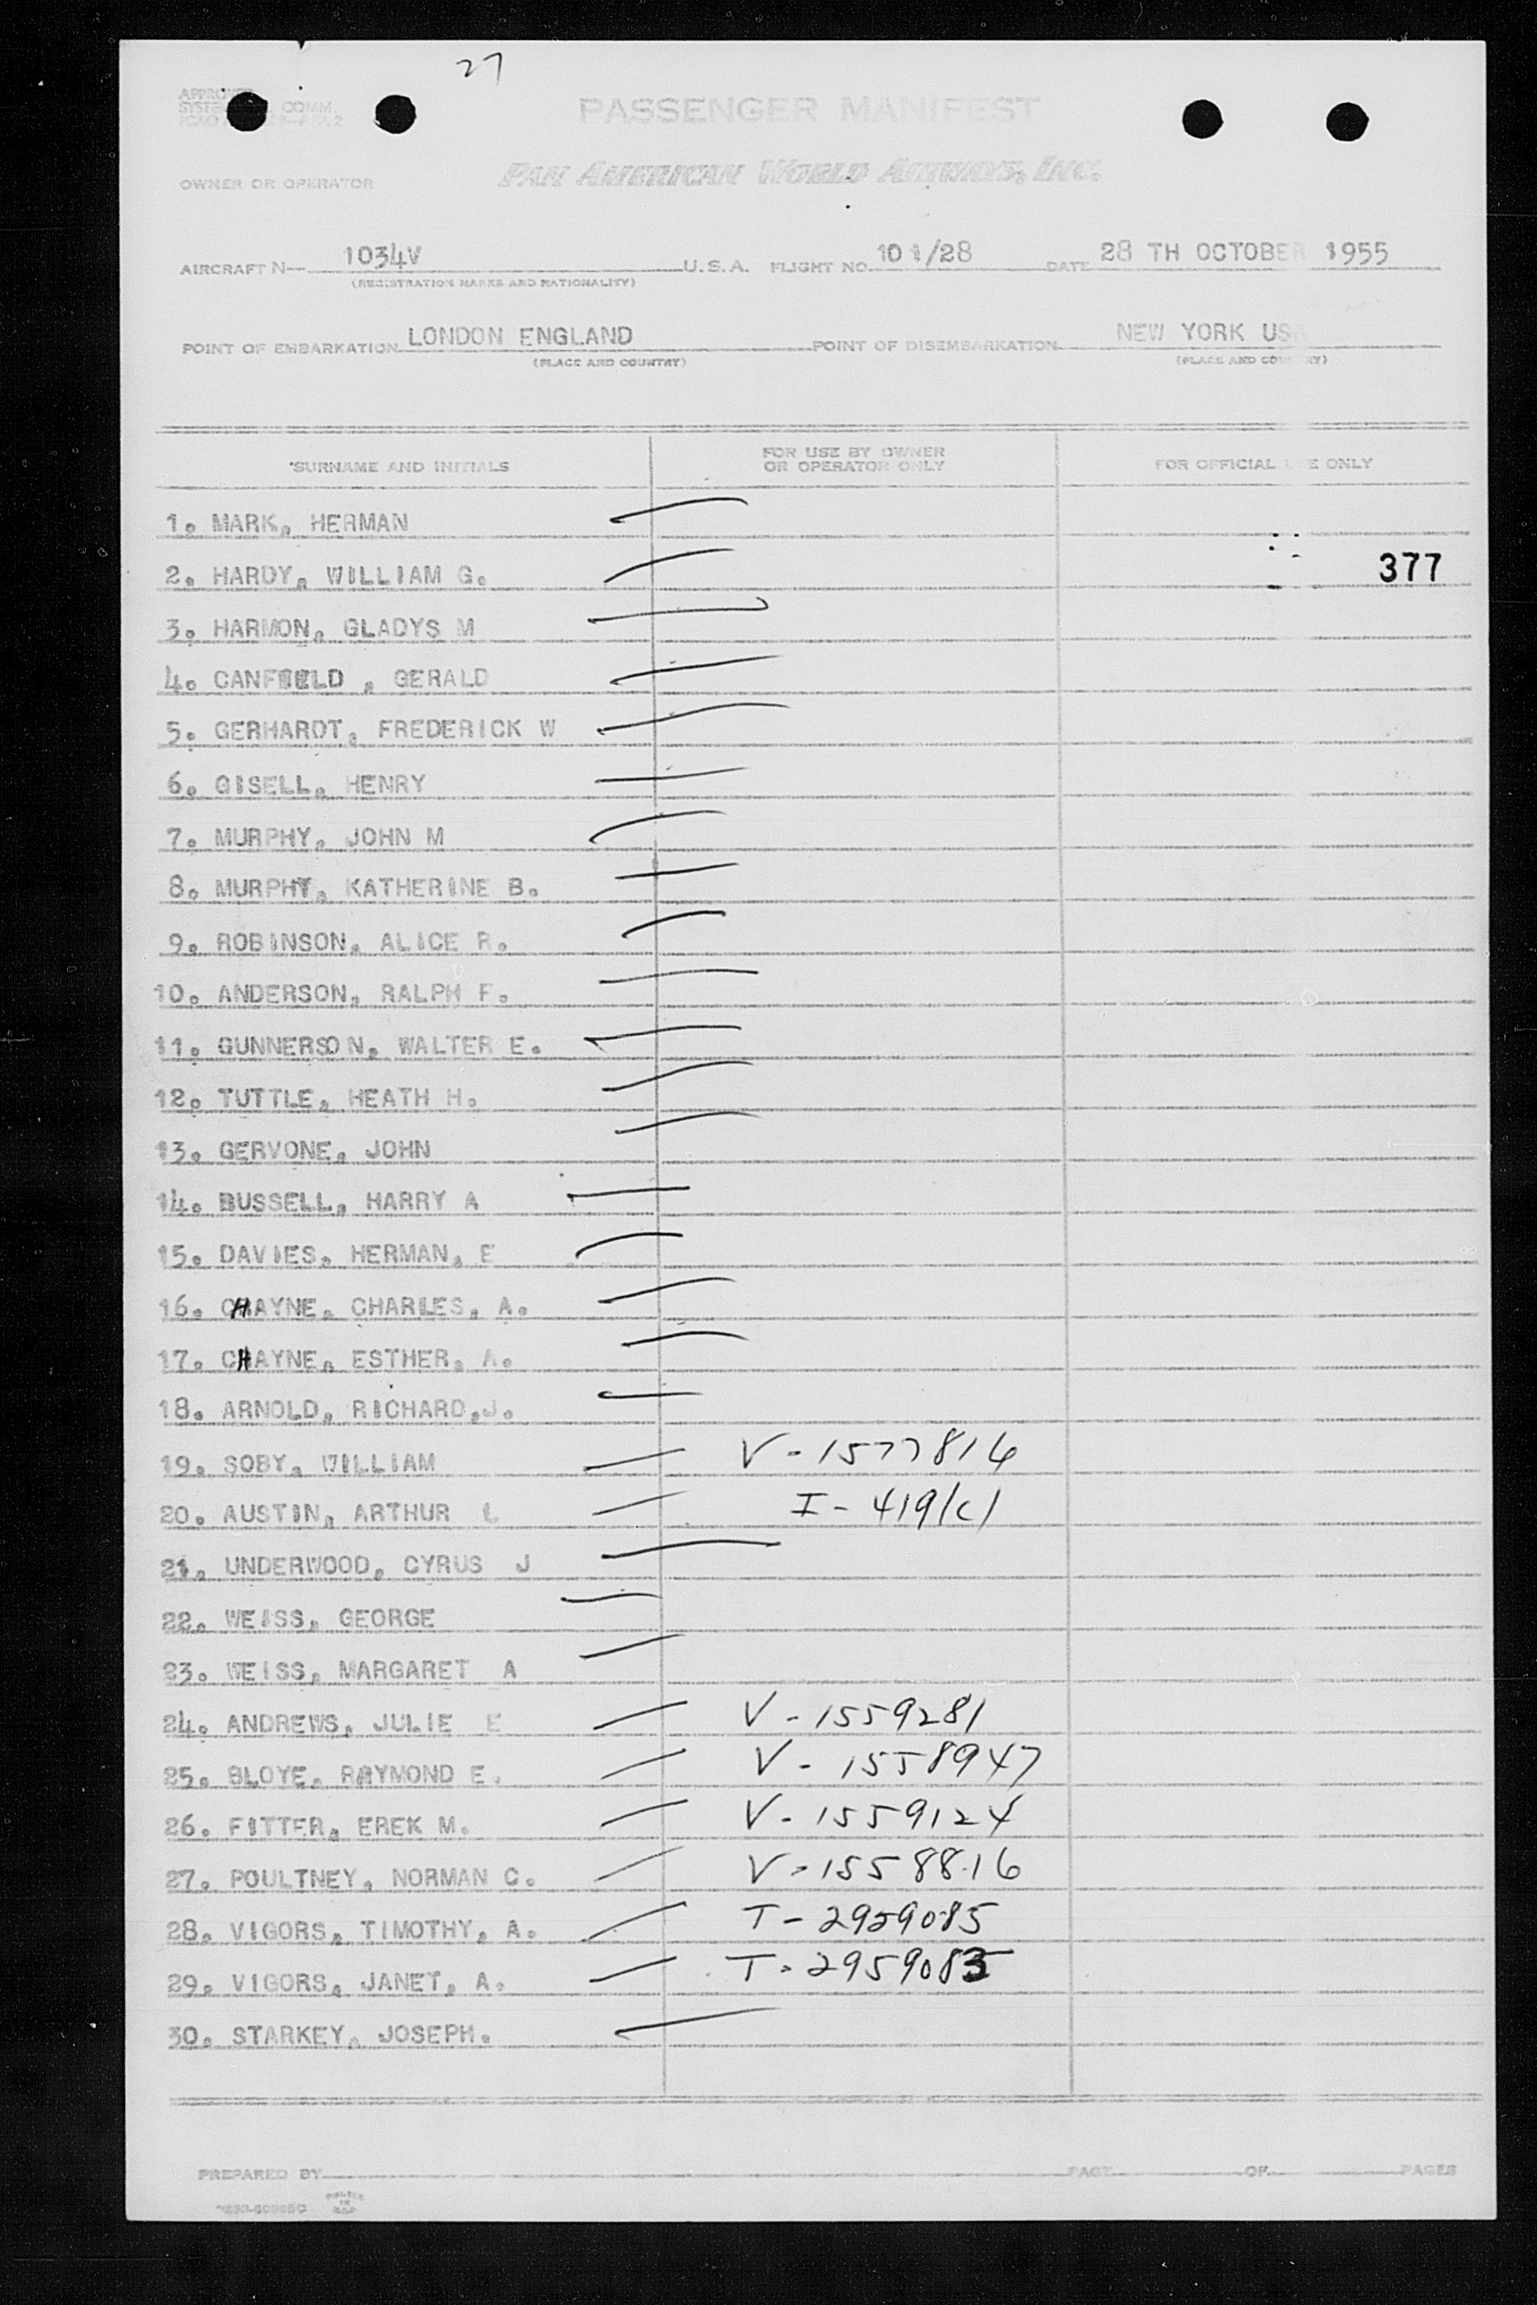 27
PASSENGER MANIFEST
PAN AMERICAN WORLD AIRWAYS, INC.
OWNER OR OPERATOR
AIRCRAFT N— 1034V U.S.A. FLIGHT NO. 101/28 DATE 28 TH OCTOBER 1955
(REGISTRATION MARKS AND NATIONALITY)
POINT OF EMBARKATION LONDON ENGLAND POINT OF DISEMBARKATION NEW YORK USA
(PLACE AND COUNTRY) (PLACE AND COUNTRY)
SURNAME AND INITIALS FOR USE BY OWNER OR OPERATOR ONLY FOR OFFICIAL USE ONLY
1. MARK, HERMAN
2. HARDY, WILLIAM G. 377
3. HARMON, GLADYS M
4. CANFIELD , GERALD
5. GERHARDT, FREDERICK W
6. GISELL, HENRY
7. MURPHY, JOHN M
8. MURPHY, KATHERINE B.
9. ROBINSON, ALICE R.
10. ANDERSON, RALPH F.
11. GUNNERSON, WALTER E.
12. TUTTLE, HEATH H.
13. GERVONE, JOHN
14. BUSSELL, HARRY A
15. DAVIES, HERMAN, E
16. CHAYNE, CHARLES, A.
17. CHAYNE, ESTHER, A.
18. ARNOLD, RICHARD,J.
19. SOBY, WILLIAM V-1577816
20. AUSTIN, ARTHUR L I-419(c)
21. UNDERWOOD, CYRUS J
22. WEISS, GEORGE
23. WEISS, MARGARET A
24. ANDREWS, JULIE E V-1559281
25. BLOYE, RAYMOND E. V-1558947
26. FITTER, EREK M. V-1559124
27. POULTNEY, NORMAN C. V-1558816
28. VIGORS, TIMOTHY, A. T-2959085
29. VIGORS, JANET, A. T-2959083
30. STARKEY, JOSEPH.
PREPARED BY PAGE OF PAGES